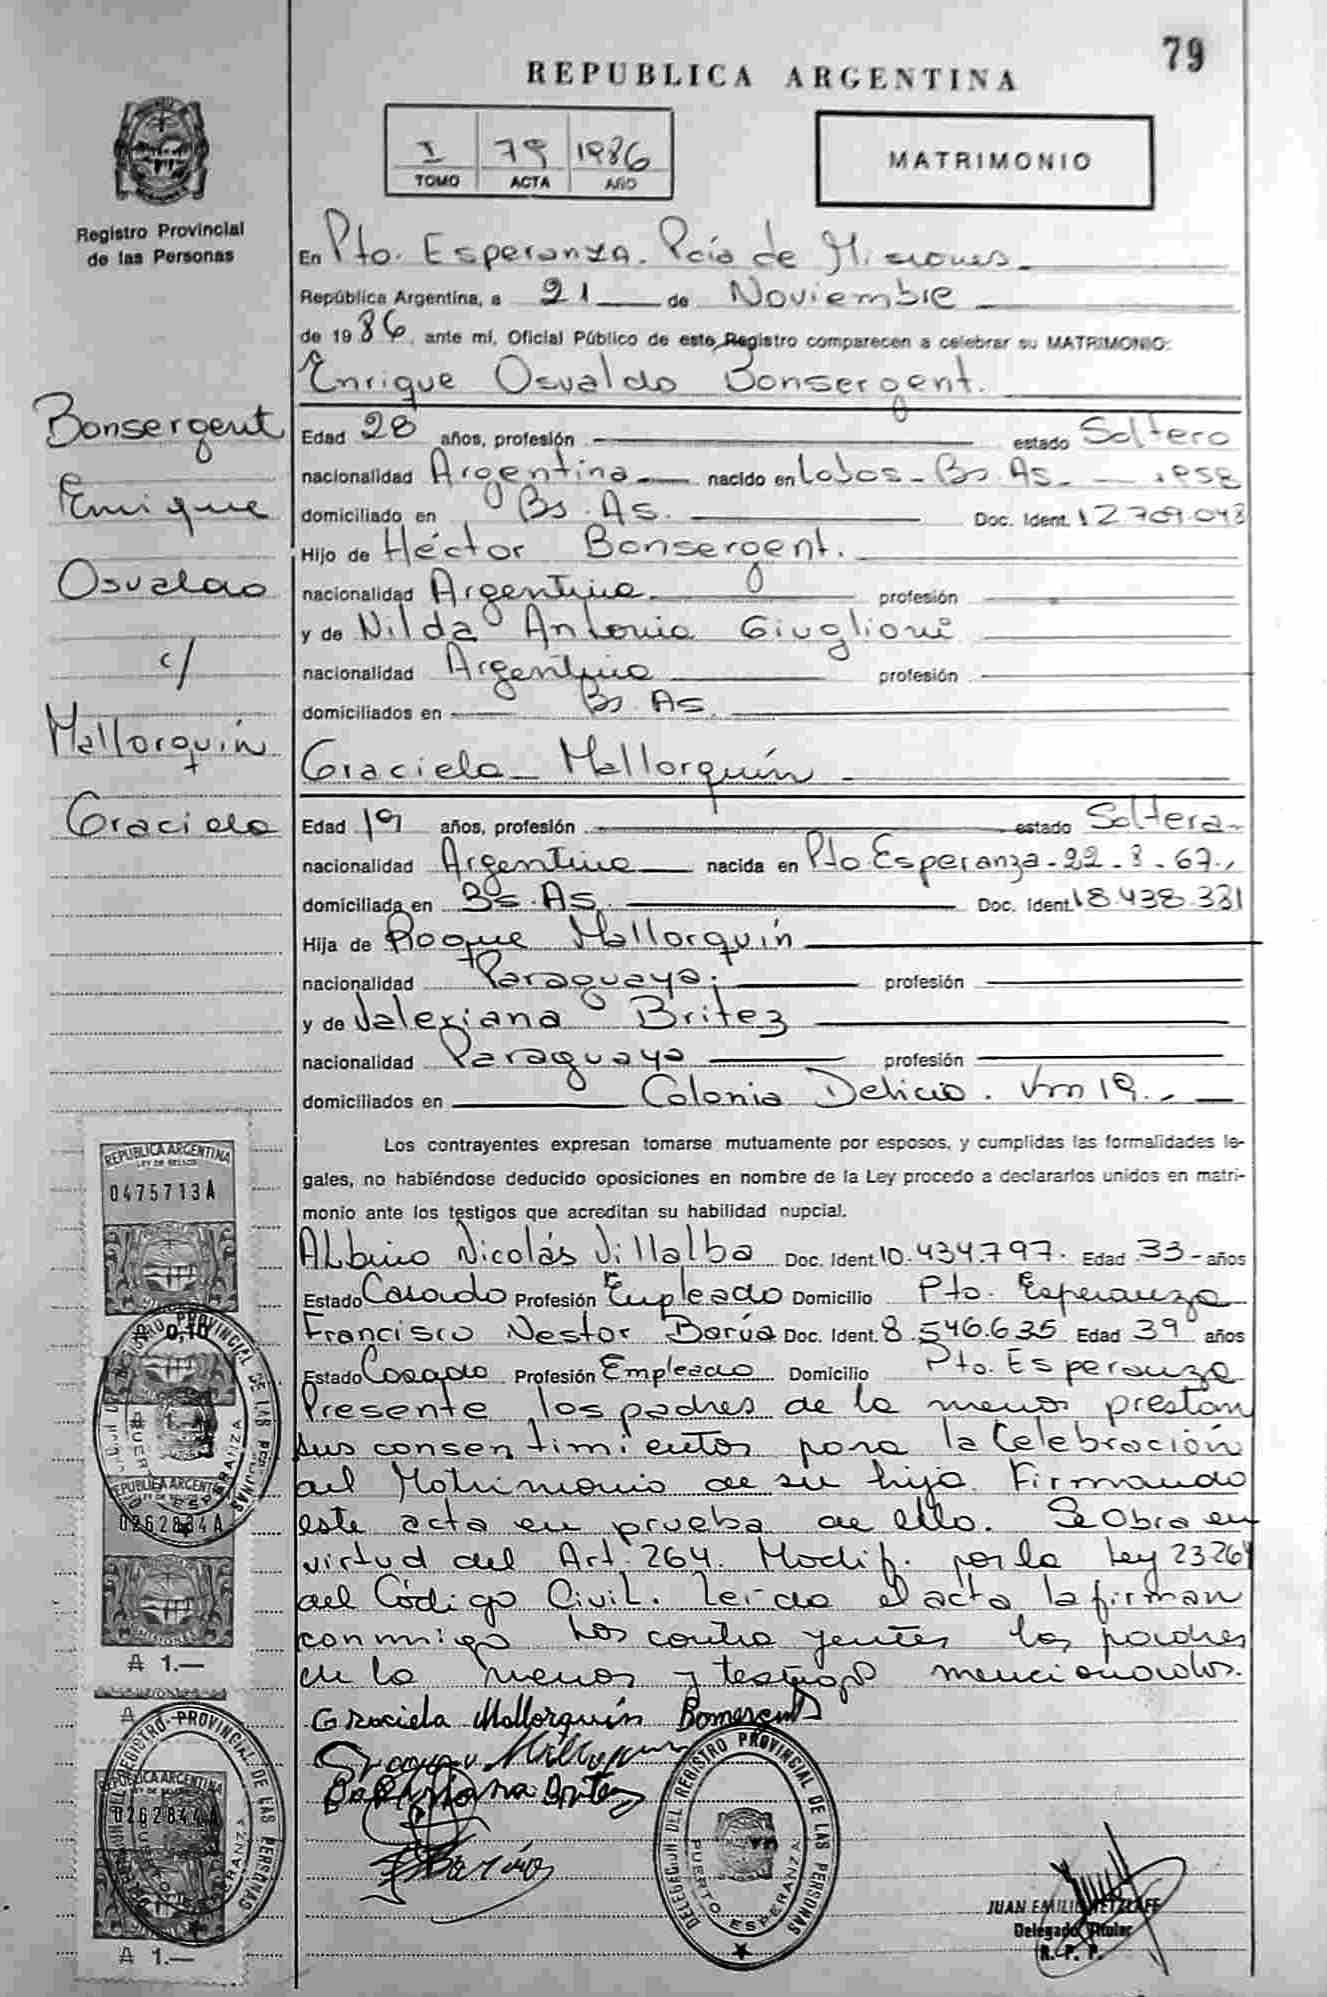 79
REPUBLICA ARGENTINA
I 79 1986
TOMO ACTA AÑO
MATRIMONIO
Registro Provincial
de las Personas
En Pto. Esperanza. Pcia de Misiones
República Argentina, a 21 de Noviembre
de 1986, ante mí, Oficial Público de este Registro comparecen a celebrar su MATRIMONIO:
Enrique Osvaldo Bonsergent.
Bonsergent
Enrique
Osvaldo
c/
Mallorquín
Graciela
Edad 28 años, profesión estado Soltero
nacionalidad Argentina nacido en Lobos - Bs. As. 1958
domiciliado en Bs. As. Doc. Ident. 12.709.043
Hijo de Héctor Bonsergent.
nacionalidad Argentina profesión
y de Nilda Antonia Giuglioni
nacionalidad Argentina profesión
domiciliados en Bs. As.
Graciela Mallorquín
Edad 19 años, profesión estado Soltera
nacionalidad Argentina nacida en Pto Esperanza - 22 - 8 - 67.
domiciliada en Bs. As. Doc. Ident. 18.438.331
Hija de Roque Mallorquín
nacionalidad Paraguaya. profesión
y de Valeriana Britez
nacionalidad Paraguaya profesión
domiciliados en Colonia Delicia. Km 19.
Los contrayentes expresan tomarse mutuamente por esposos, y cumplidas las formalidades le-
gales, no habiéndose deducido oposiciones en nombre de la Ley procedo a declararlos unidos en matri-
monio ante los testigos que acreditan su habilidad nupcial.
Albino Nicolás Villalba Doc. Ident. 10.434.797. Edad 33 años
Estado Casado Profesión Empleado Domicilio Pto. Esperanza
Francisco Nestor Barúa Doc. Ident. 8.546.635 Edad 39 años
Estado Casado Profesión Empleado Domicilio Pto. Esperanza
Presente los padres de la menor prestan
sus consentimientos para la Celebración
del Matrimonio de su hija Firmando
este acta en prueba de ello. Se Obra en
virtud del Art. 264. Modif. por la Ley 23264
del Código Civil. Leida el acta la firman
conmigo los contra yentes los padres
de la menor y testigos mencionados.
Graciela Mallorquín Bonsergent
REPUBLICA ARGENTINA
LEY DE SELLOS
0475713A
A 0,10
REGISTRO PROVINCIAL DE LAS PERSONAS
PUERTO ESPERANZA
REPUBLICA ARGENTINA
0262834A
MISIONES
A 1.—
A
REGISTRO PROVINCIAL DE LAS PERSONAS
PUERTO ESPERANZA
REPUBLICA ARGENTINA
0262844A
A 1.—
DELEGACION DEL REGISTRO PROVINCIAL DE LAS PERSONAS
PUERTO ESPERANZA
JUAN EMILIO RETZLAFF
Delegado Titular
R. P. P.